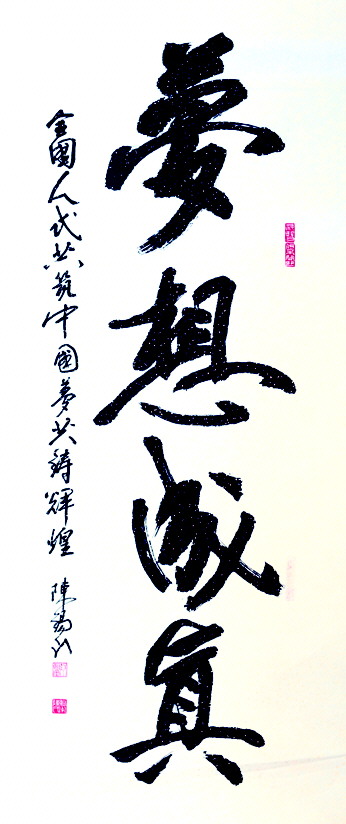 夢想成真
全國人民共筑中國夢共鑄輝煌 陳錫